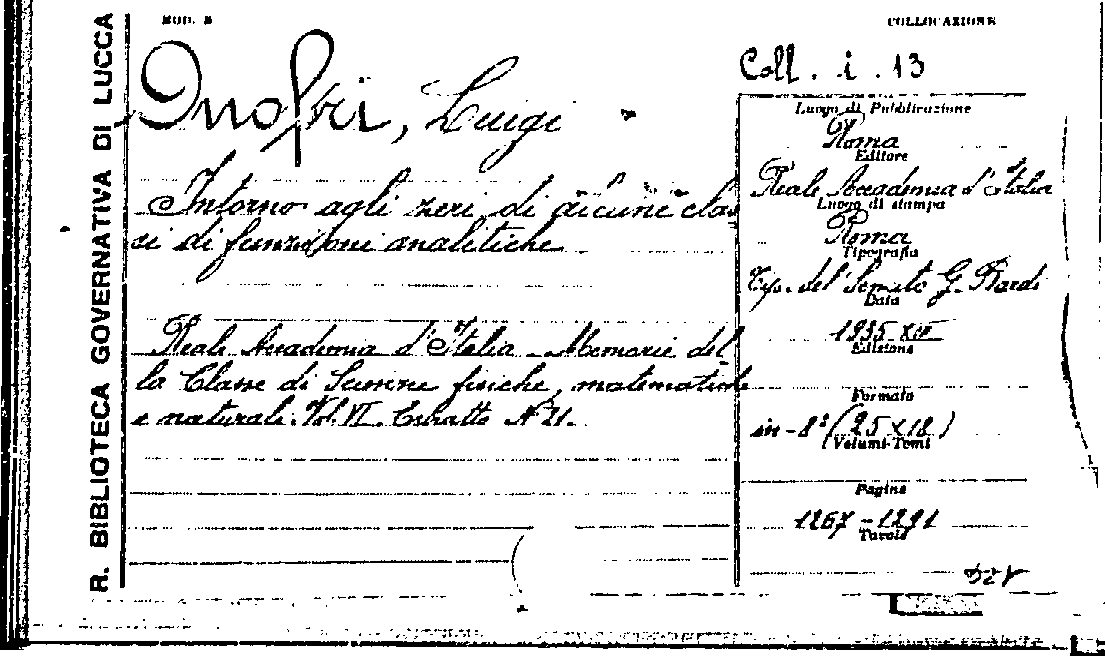 MOD. B
COLLOCAZIONE
R. BIBLIOTECA GOVERNATIVA DI LUCCA
Onofri, Luigi
Coll. i. 13
Intorno agli zeri di alcune clas
si di funzioni analitiche
Reale Accademia d'Italia - Memorie del
la Classe di Scienze fisiche, matematiche
e naturali. Vol. VI. Estratto N° 21.
Luogo di Pubblicazione
Roma
Editore
Reale Accademia d'Italia
Luogo di stampa
Roma
Tipografia
Tip. del Senato G. Bardi
Data
1935-XIII
Edizione
Formato
in-8° (25x18)
Volumi-Tomi
Pagine
1267-1291
Tavole